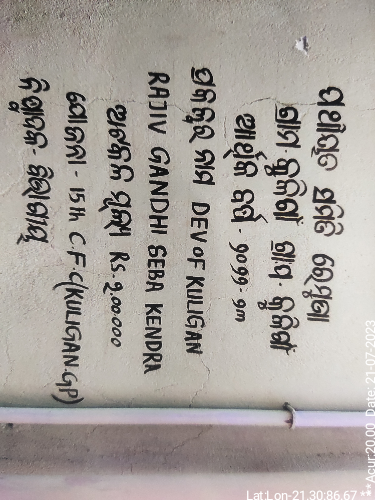 ପଞ୍ଚାୟତ ସମିତି ରେମୁଣା
ଗ୍ରାମ କୁଳିଗାଁ ଗ୍ରା.ପ. କୁଳିଗାଁ
ଆର୍ଥିକ ବର୍ଷ - ୨୦୨୨ - ୨୩
ପ୍ରକଳ୍ପର ନାମ DEV OF KULIGAN
RAJIV GANDHI SEBA KENDRA
ଅଟକଳ ମୂଲ୍ୟ RS. 2,00,000
ଯୋଜନା - 15th C.F.C (KULIGAN.GP)
Lat Lon-21.30:86.67 *** Acur:20.00 Date: 21-07-2023